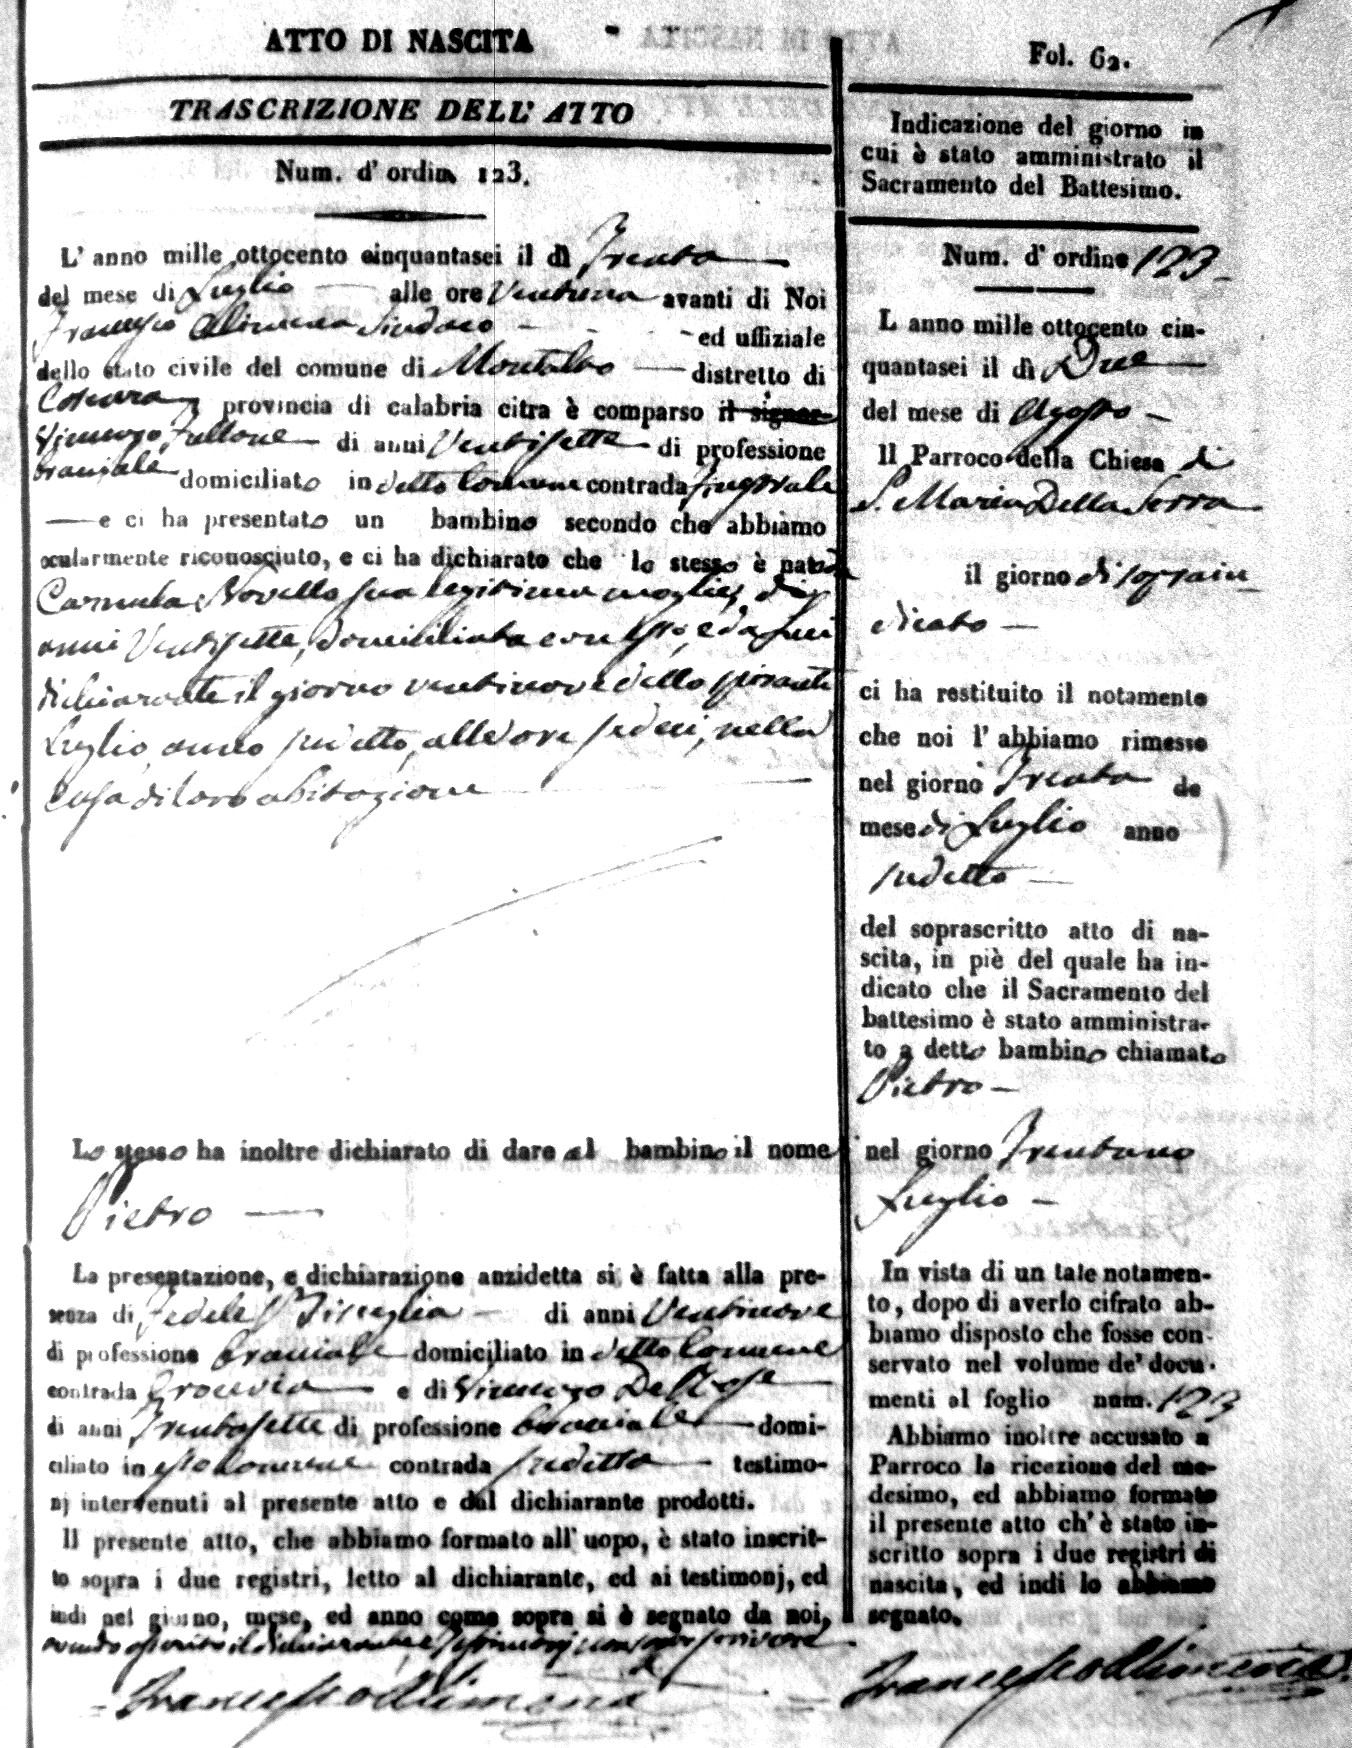 ATTO DI NASCITA
TRASCRIZIONE DELL' ATTO
Num. d' ordin 123.
L' anno mille ottocento cinquantasei il dì Trenta
del mese di Luglio alle ore Ventuna avanti di Noi
Francesco Alimena Sindaco ed uffiziale
dello stato civile del comune di Montalto distretto di
Cosenza provincia di calabria citra è comparso il signor
Vincenzo Fullone di anni Ventisette di professione
braciale domiciliato in detto Comune contrada
e ci ha presentato un bambino secondo che abbiamo
ocularmente riconosciuto, e ci ha dichiarato che lo stesso è nato da
Carmela Novello sua legittima moglie, di
anni Ventisette, domiciliata con esso, e da lui
dichiarante il giorno ventinove dello spirante
Luglio, anno sudetto, alle ore sedeci, nella
casa di loro abitazione
Lo stesso ha inoltre dichiarato di dare al bambino il nome
Pietro
La presentazione, e dichiarazione anzidetta si è fatta alla pre-
senza di Fedele Bisceglia di anni Ventinove
di professione braciale domiciliato in detto Comune
contrada e di Vincenzo De Rose
di anni Trentasette di professione braciale domi-
ciliato in esso Comune contrada sudetta testimo-
nj intervenuti al presente atto e dal dichiarante prodotti.
Il presente atto, che abbiamo formato all' uopo, è stato inscrit-
to sopra i due registri, letto al dichiarante, ed ai testimonj, ed
indi nel giorno, mese, ed anno come sopra si è segnato da noi,
avendo asserito il dichiarante, e testimonj non saper scrivere
Francesco Alimena
Fol. 62.
Indicazione del giorno in
cui è stato amministrato il
Sacramento del Battesimo.
Num. d' ordine 123
L anno mille ottocento cin-
quantasei il dì Due
del mese di Agosto
Il Parroco della Chiesa di
S. Maria Della Serra
il giorno di sopra in
dicato
ci ha restituito il notamento
che noi l' abbiamo rimesso
nel giorno Trenta de
mese di Luglio anno
sudetto
del soprascritto atto di na-
scita, in piè del quale ha in-
dicato che il Sacramento del
battesimo è stato amministra-
to a detto bambino chiamato
Pietro
nel giorno Trentuno
Luglio
In vista di un tale notamen-
to, dopo di averlo cifrato ab-
biamo disposto che fosse con-
servato nel volume de' docu-
menti al foglio num. 123
Abbiamo inoltre accusato a
Parroco la ricezione del me-
desimo, ed abbiamo formato
il presente atto ch' è stato in-
scritto sopra i due registri di
nascita, ed indi lo abbiamo
segnato.
Francesco Alimena